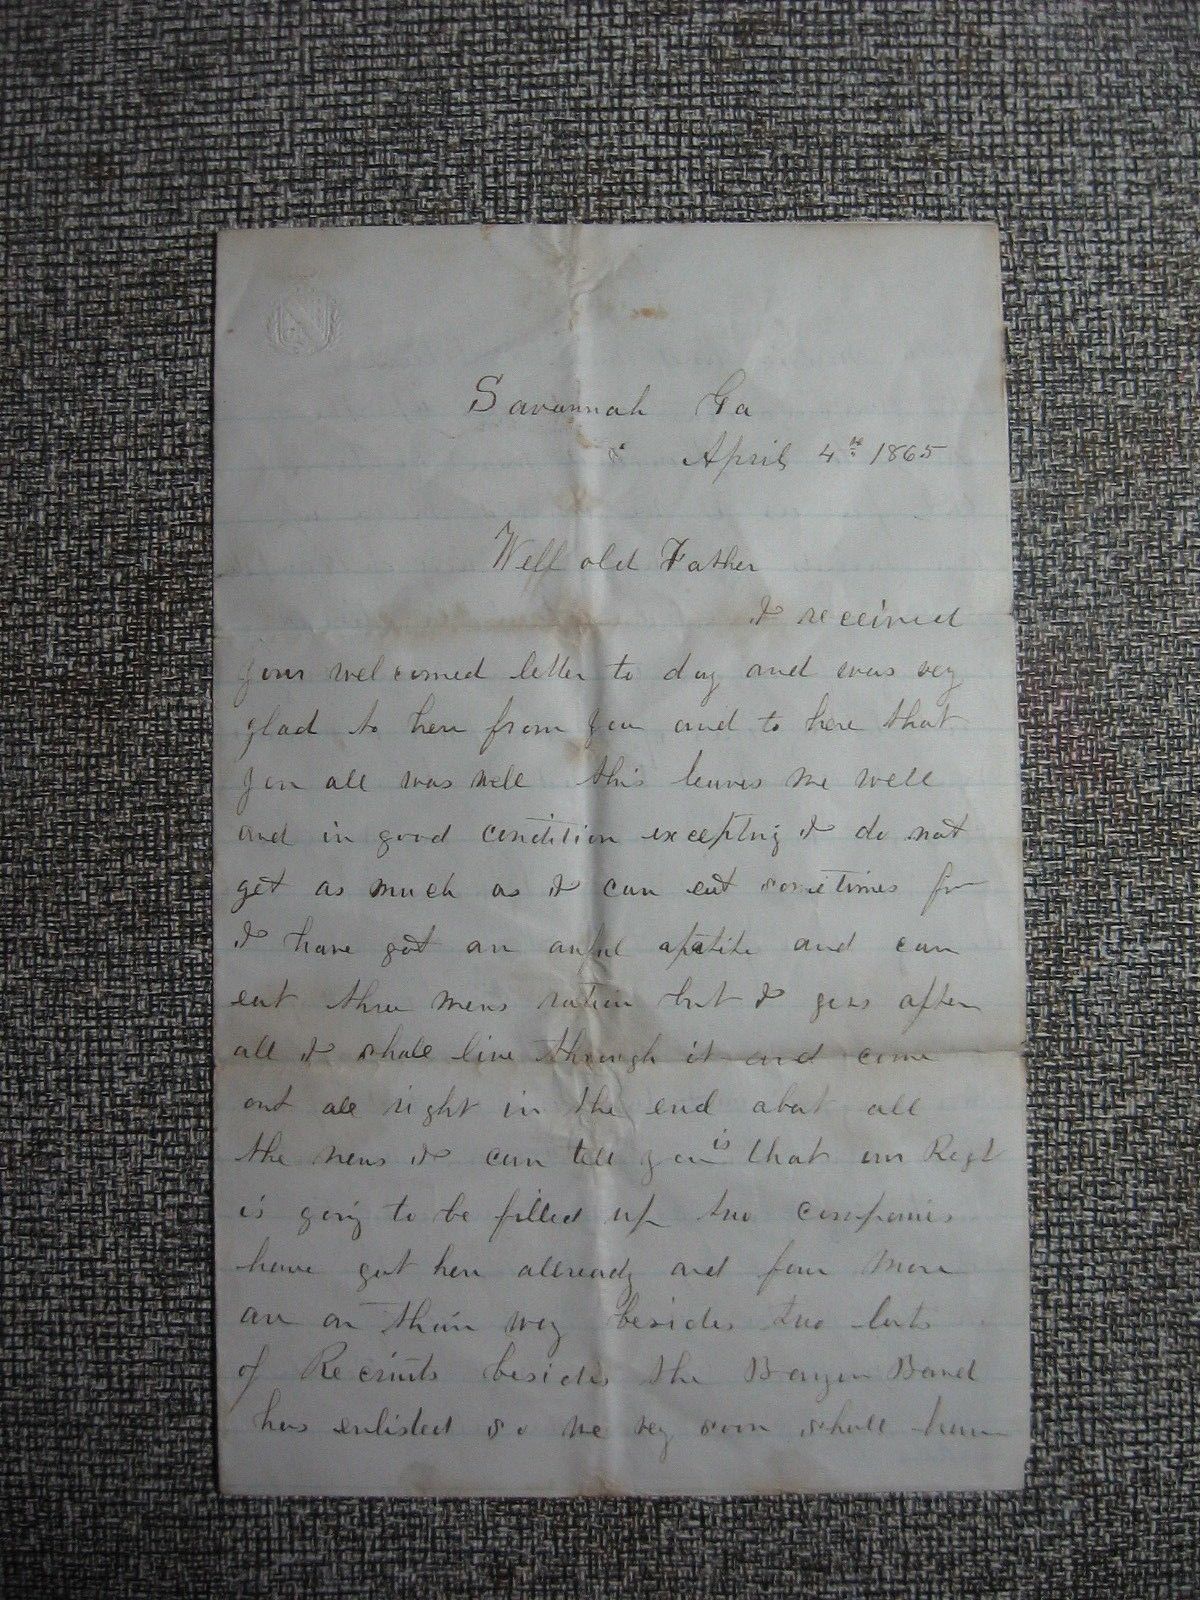 Savannah Ga
April 4th 1865
Well old Father
I received
your welcomed letter to day and was vey
glad to here from you and to here that
you all was well this leaves me well
and in good condition excepting I do not
get as much as I can eat sometimes for
I have got an awful apatite and can
eat three mens ration but I gess after
all I shall live through it and come
out all right in the end abot all
the news I can tell you is that our Regt
is going to be filled up two companies
have got here allready and four more
are on thair way besides two lots
of Recruits besides the Band
has enlisted so we vey soon shall have